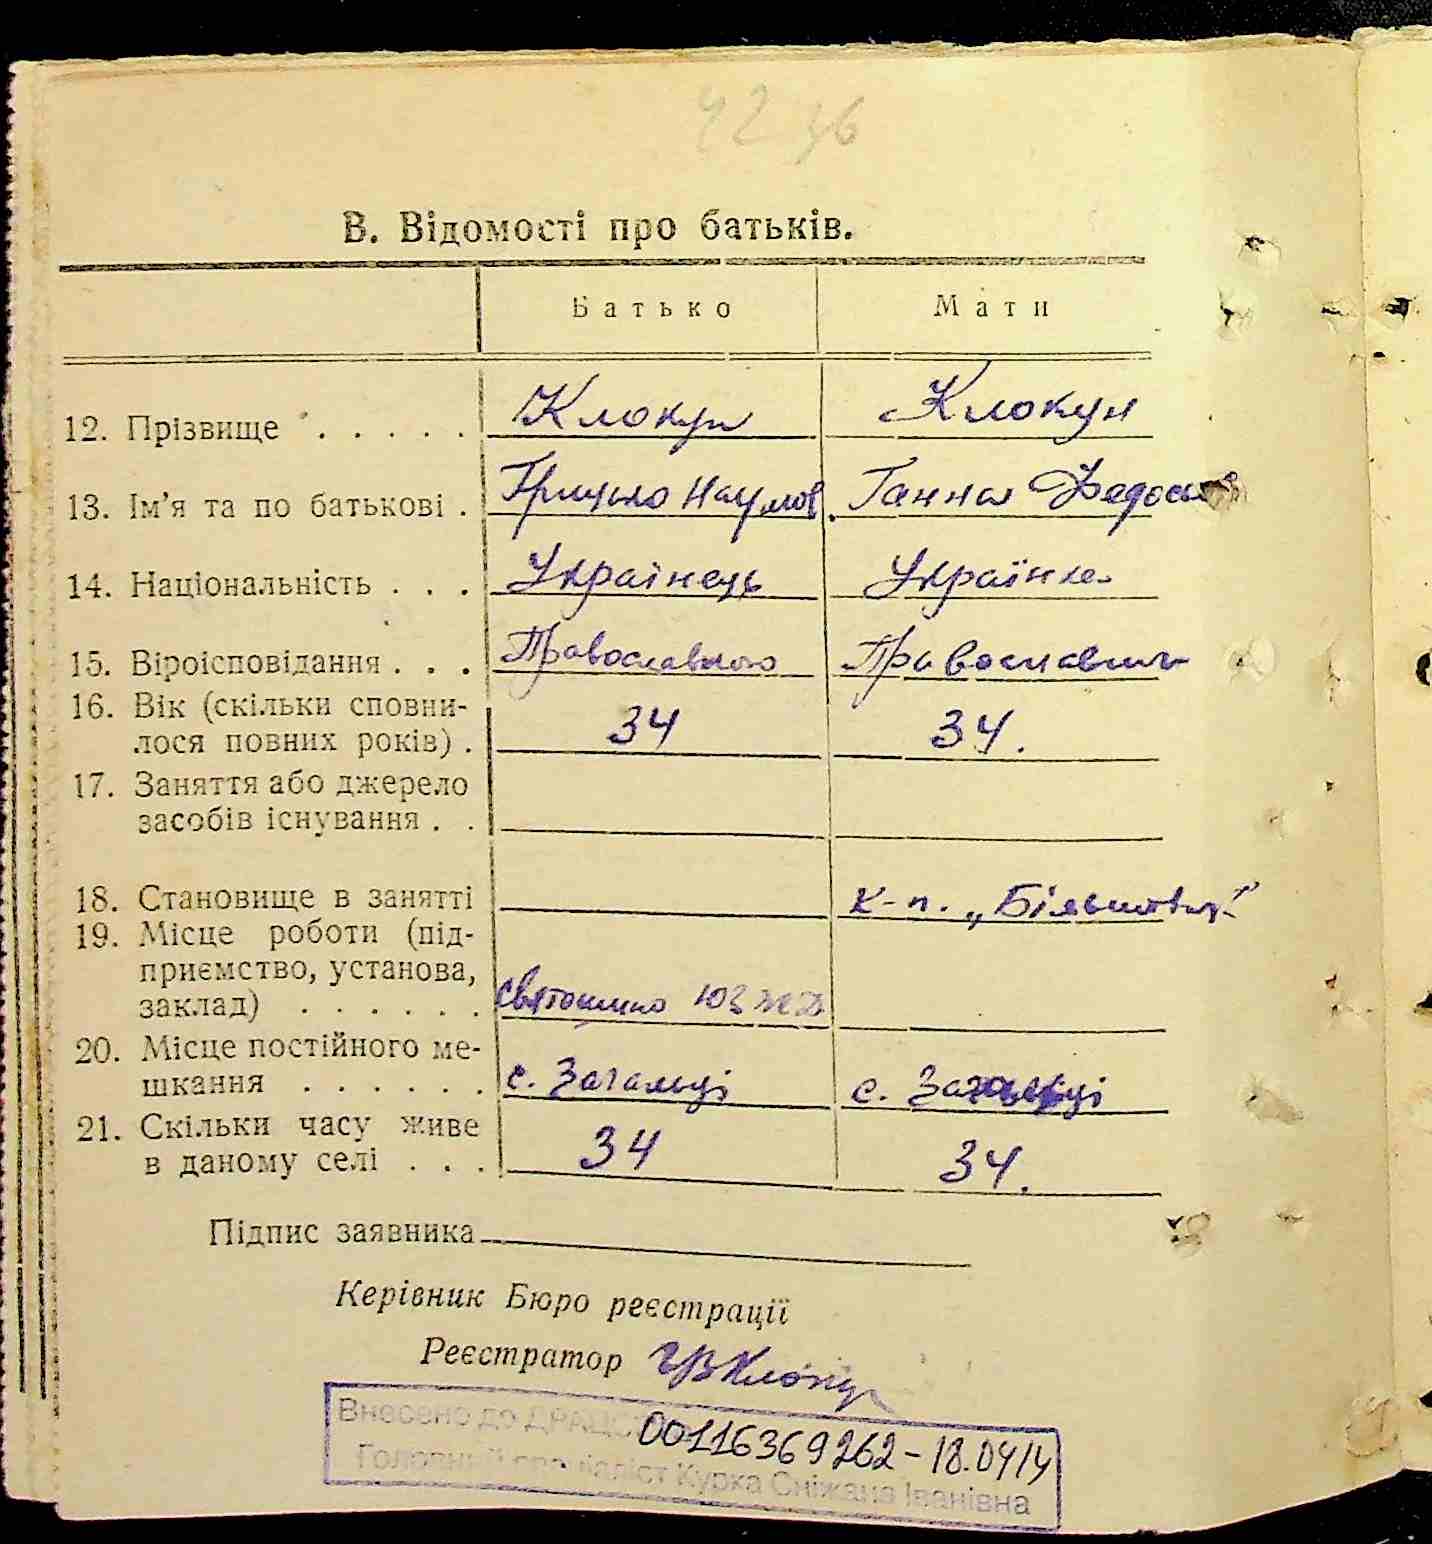 42 46
В. Відомості про батьків.
Батько Мати
12. Прізвище . . . . . Клокун Клокун
13. Ім’я та по батькові . Грицько Наумов. Ганна Федось
14. Національність . . . Українець Українка
15. Віроісповідання . . . Православною Православни
16. Вік (скільки сповни-
лося повних років) . 34 34.
17. Заняття або джерело
засобів існування . .
18. Становище в занятті к-п. „Більшовик"
19. Місце роботи (під-
приємство, установа,
заклад) . . . . . . Святошино ЮЗЖД
20. Місце постійного ме-
шкання . . . . . . с. Загальці с. Загальці
21. Скільки часу живе
в даному селі . . . 34 34.
Підпис заявника
Керівник Бюро реєстрації
Реєстратор
Внесено до ДРАЦС 00116369262-18.04.14
Головний спеціаліст Курка Сніжана Іванівна